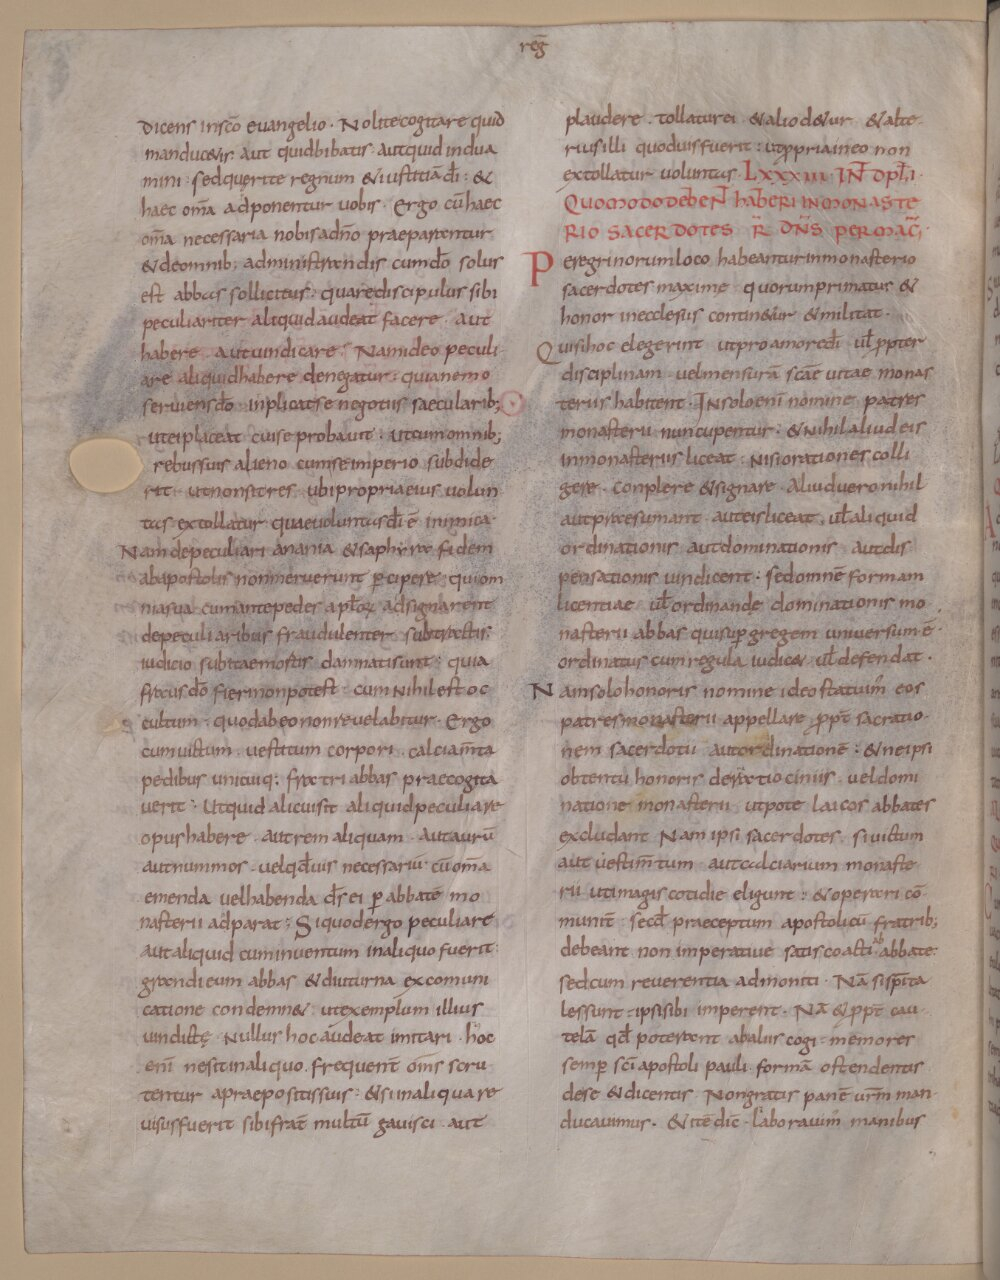 reḡ
dicens insc̄o euangelio · Nolite cogitare quid
manducetis aut quid bibatis · aut quid indua
mini · sed querite regnum & iustitiā dī : &
haec om̄a adponentur uobis · Ergo cū haec
om̄a necessaria nobis ad n̄o praeparentur
& de omnib; administrandis cum dō solus
est abbas sollicitus : quare discipulus sibi
peculiariter aliquid audeat facere · aut
habere · aut uindicare · Nam ideo peculi
are aliquid habere denegatur : quia nemo
seruiens dō · inplicat se negotiis saecularib;
ut ei placeat cui se probauit : ut cum omnib;
rebus suis alieno cum se imperio subdide
rit · ut non sit res · ubi propria eius uolun
tas extollatur quae uoluntas dī ē inimica ·
Nam de peculiari anania & saphyra fidem
ab apostolis non meruerunt p̄cipere : qui om
nia sua cum ante pedes apl̄oꝝ adsignarent
de peculiaribus fraudulenter subtractis
iudicio subitae mortis damnati sunt : quia
fraus dō fieri non potest : cum nihil est oc
cultum : quod ab eo non reuelabitur · Ergo
cum uictum · uestitum corpori · calciam̄ta
pedibus unicuiq; fratri abbas praecogita
uerit : Ut quid alicui sit aliquid peculiare
opus habere · aut rem aliquam · aut aurū
aut nummos · uel qd̄ uis necessariū · cū om̄a
emenda uel habenda d̄s ei p̄ abbatē mo
nasterii adparat : Si quod ergo peculiare
aut aliquid cum inuentum in aliquo fuerit :
grandi eum abbas & diuturna excomuni
catione condemn& : ut exemplum illius
uindictę · Nullus hoc audeat imitari · hoc
enī ne sit in aliquo · frequent̄ om̄s scru
tentur a praepositis suis : & si in aliqua re
uisus fuerit sibi frat̄ multū gauisci · aut
plaudere · tollatur ei & aliod &ur & alte
rius illi quod uis fuerit : ut propria in eo non
extollatur uoluntas · LXXXIII IN̄T DPL̄I ·
QUOMODO DEBEN̄T HABERI IN MONASTE
RIO SACERDOTES R̄ DN̄S PER MAḠ;
Peregrinorum loco habeantur in monasterio
sacerdotes maxime quorum primatus &
honor in ecclesiis contin&ur & militat ·
Qui si hoc elegerint ut pro amore dī ul̄ ꝓpter
disciplinam uel mensurā sc̄ae uitae monas
teriis habitent · In solo enī nomine patres
monasterii nuncupentur : & Nihil aliud eis
in monasteriis liceat · Nisi orationes colli
gere · Conplere & signare · Aliud uero nihil
aut praesumant aut eis liceat · ul̄ aliquid
ordinationis aut dominationis aut dis
pensationis uindicent : sed omnē formam
licentiae ul̄ ordinandę dominationis mo
nasterii abbas qui sup̄ gregem uniuersum ē
ordinatus cum regula iudic& ul̄ defendat ·
Nam solo honoris nomine ideo statuim̄ eos
patres monasterii appellare ꝓpt̄ sacratio
nem sacerdotii aut ordinationē : & ne ipsi
obtentu honoris de ratiociniis · uel domi
natione monasterii utpote laicos abbates
excludant Nam ipsi sacerdotes · si uictum
aut uestim̄tum aut calciarium monaste
rii uti magis cotidie eligunt : & operari cō
munit̄ secd̄ praeceptum apostolicū fratrib;
debeant non imperatiue satis coacti ab abbate :
sed cum reuerentia admoniti · Nā si sp̄ita
les sunt · ipsi sibi imperent · Nā & ꝓpt̄ cau
telā qd̄ poterant ab aliis cogi · memores
semp̄ sc̄i apostoli pauli formā ostendentis
de se & dicentis · Non gratis panē urm̄ man
ducauimus · & itē dic̄ · laborauim̄ manibus